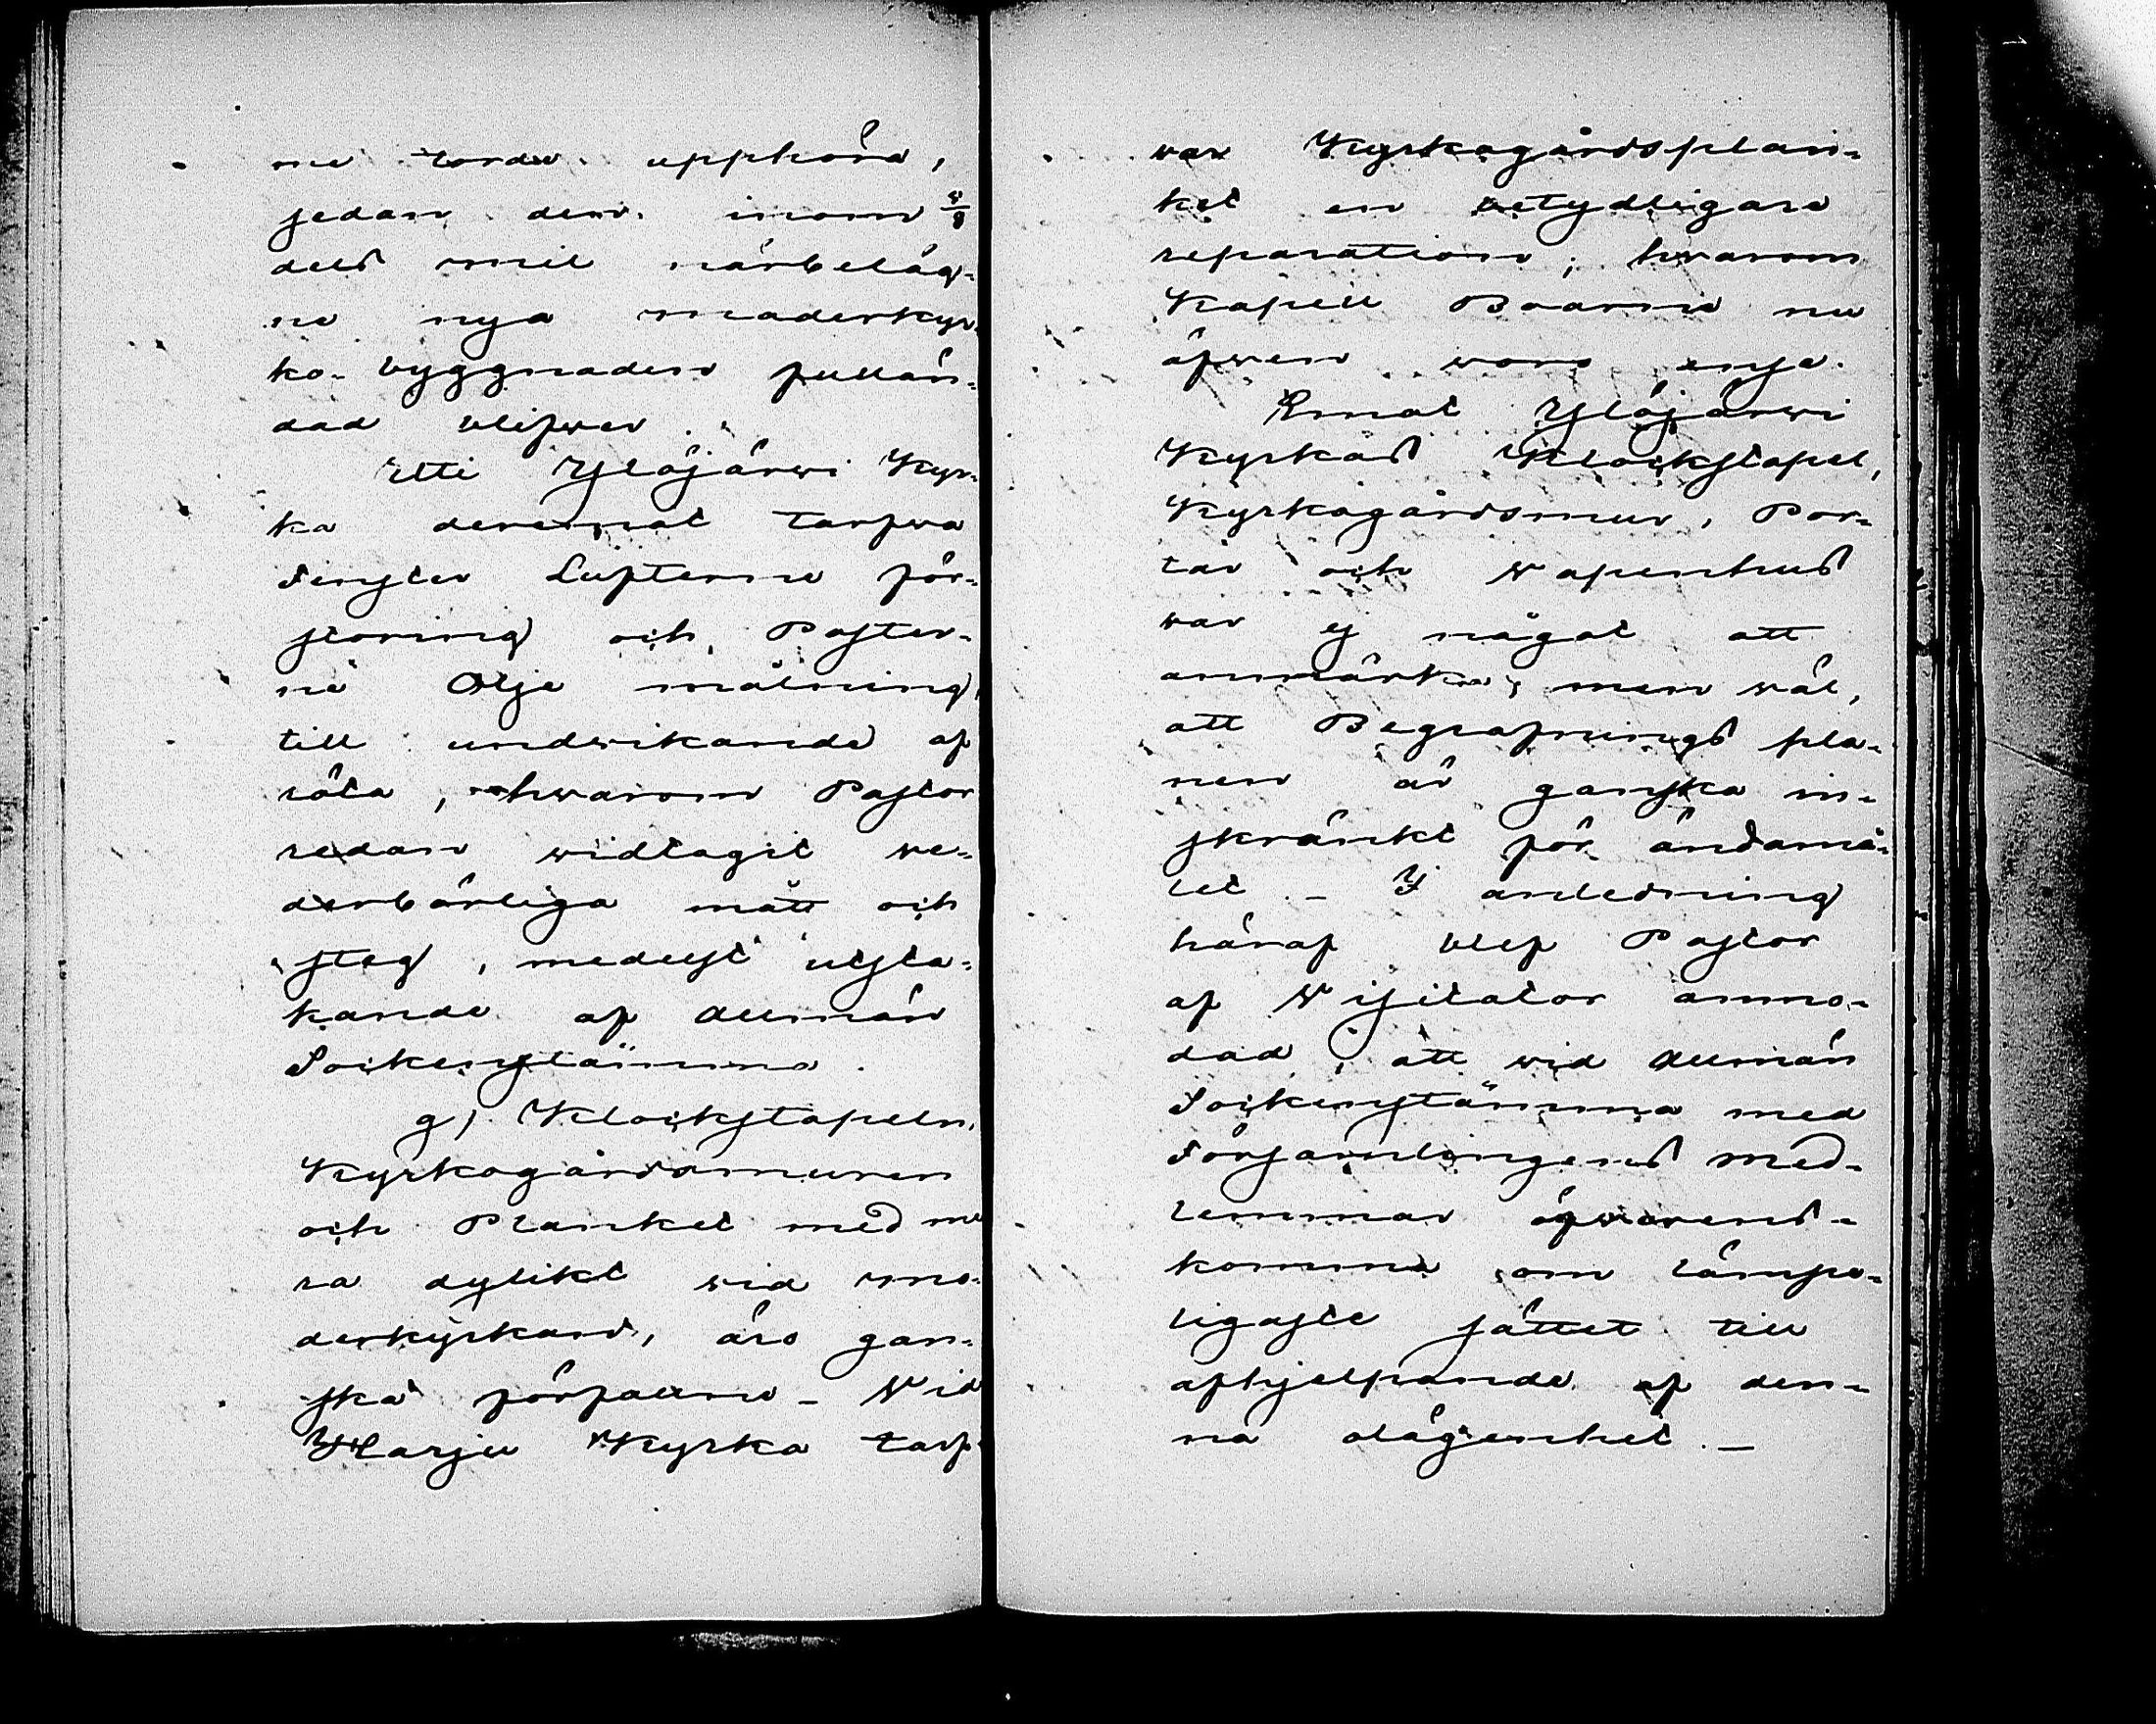 ne torde upphöra,
sedan den inom 4/8
dels mil närbeläg-
ne nya moderkyr-
ko-byggnaden fullän-
dad blifver.
Uti Ylöjärwi Kyr-
ka deremot tarfwa
Fenster Lufterne för-
storing och Poster-
ne Olje målning,
till undwikande af
röta, hwarom Pastor
redan widtagit we-
derbörliga mått och
steg, medelst utsta-
kande af Allmän
Sockenstämma.
g) Klockstapeln,
Kyrkogårdsmuren
och Planket med me
ra dylikt wid mo-
derkyrkan, äro gan-
ska förfallne – Wid
Harju Kyrka tarf-
war Kyrkogårdsplan-
ket en betydligare
reparation; hwarom
Kapell Boarne nu
äfwen woro ense.
Emot Ylöjärwi
Kyrkas Klockstapel,
Kyrkogårdsmur, Por-
tar och Wapenhus
war ej något att
anmärka; men wäl,
att Begrafnings pla-
nen är ganska in-
skränkt för ändamå-
let. – I anledning
häraf blef Pastor
af Wisitator anmo-
dad, att wid Allmän
Sockenstämma med
Församlingens med-
lemmar öfwerens-
komma om lämpe-
ligaste sättet till
afhjelpande af den-
na olägenhet. –